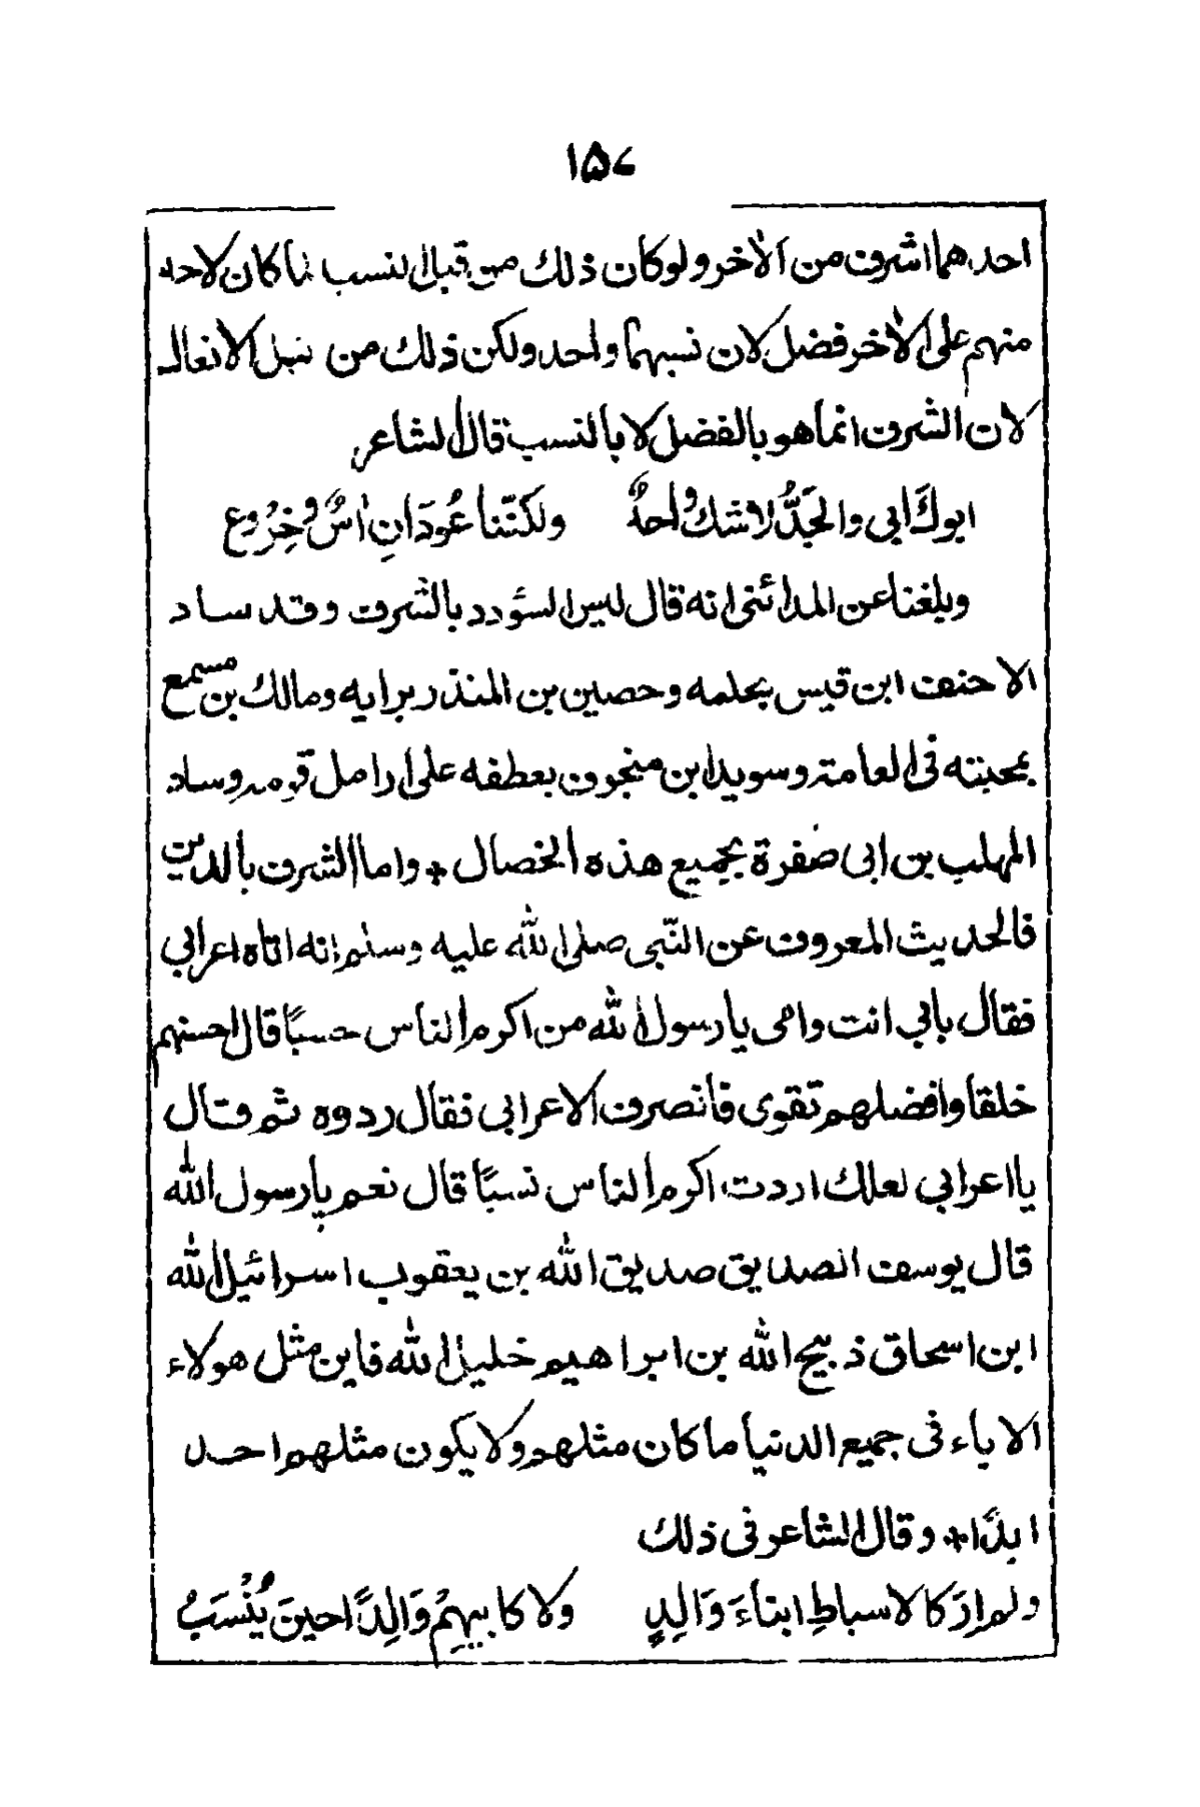 ١٥٧
احدهما اشرف من الآخر ولو كان ذلك من قبل النسب لما كان لاحد
منهم على الآخر فضل لان نسبهما واحد ولكن ذلك من قبل الافعال
لان الشرف انما هو بالفضل لا بالنسب قال الشاعر
ابوكَ ابى والجَدُّ لا شك واحدٌ ولكنّنا عُودَانِ اٰسٌ وخِرْوع
وبلغنا عن المدائنى انه قال ليس السؤدد بالشرف وقد ساد
الاحنف ابن قيس بحلمه وحصين بن المنذر برايه ومالك بن مسمع
بمحبته فى العامة وسويد ابن منجوف بعطفه على ارامل قومه وساد
المهلب بن ابى صفرة بجميع هذه الخصال + واما الشرف بالدين
فالحديث المعروف عن النّبى صلى الله عليه وسلم انه اتاه اعرابي
فقال بابي انت وامى يا رسول الله من اكرم الناس حسبًا قال احسنهم
خلقا وافضلهم تقوى فانصرف الاعرابى فقال ردوه ثم قال
يا اعرابي لعلك اردت اكرم الناس نسبًا قال نعم يا رسول الله
قال يوسف الصديق صديق الله بن يعقوب اسرائيل الله
ابن اسحاق ذبيح الله بن ابراهيم خليل الله فاين مثل هولاء
الاباء فى جميع الدنيا ما كان مثلهم ولا يكون مثلهم احد
ابدًا + وقال الشاعر فى ذلك
ولم ارَ كالاسباطِ ابناءَ وَالِدٍ ولا كابيهِمْ وَالِدًا حينَ يُنْسَبُ